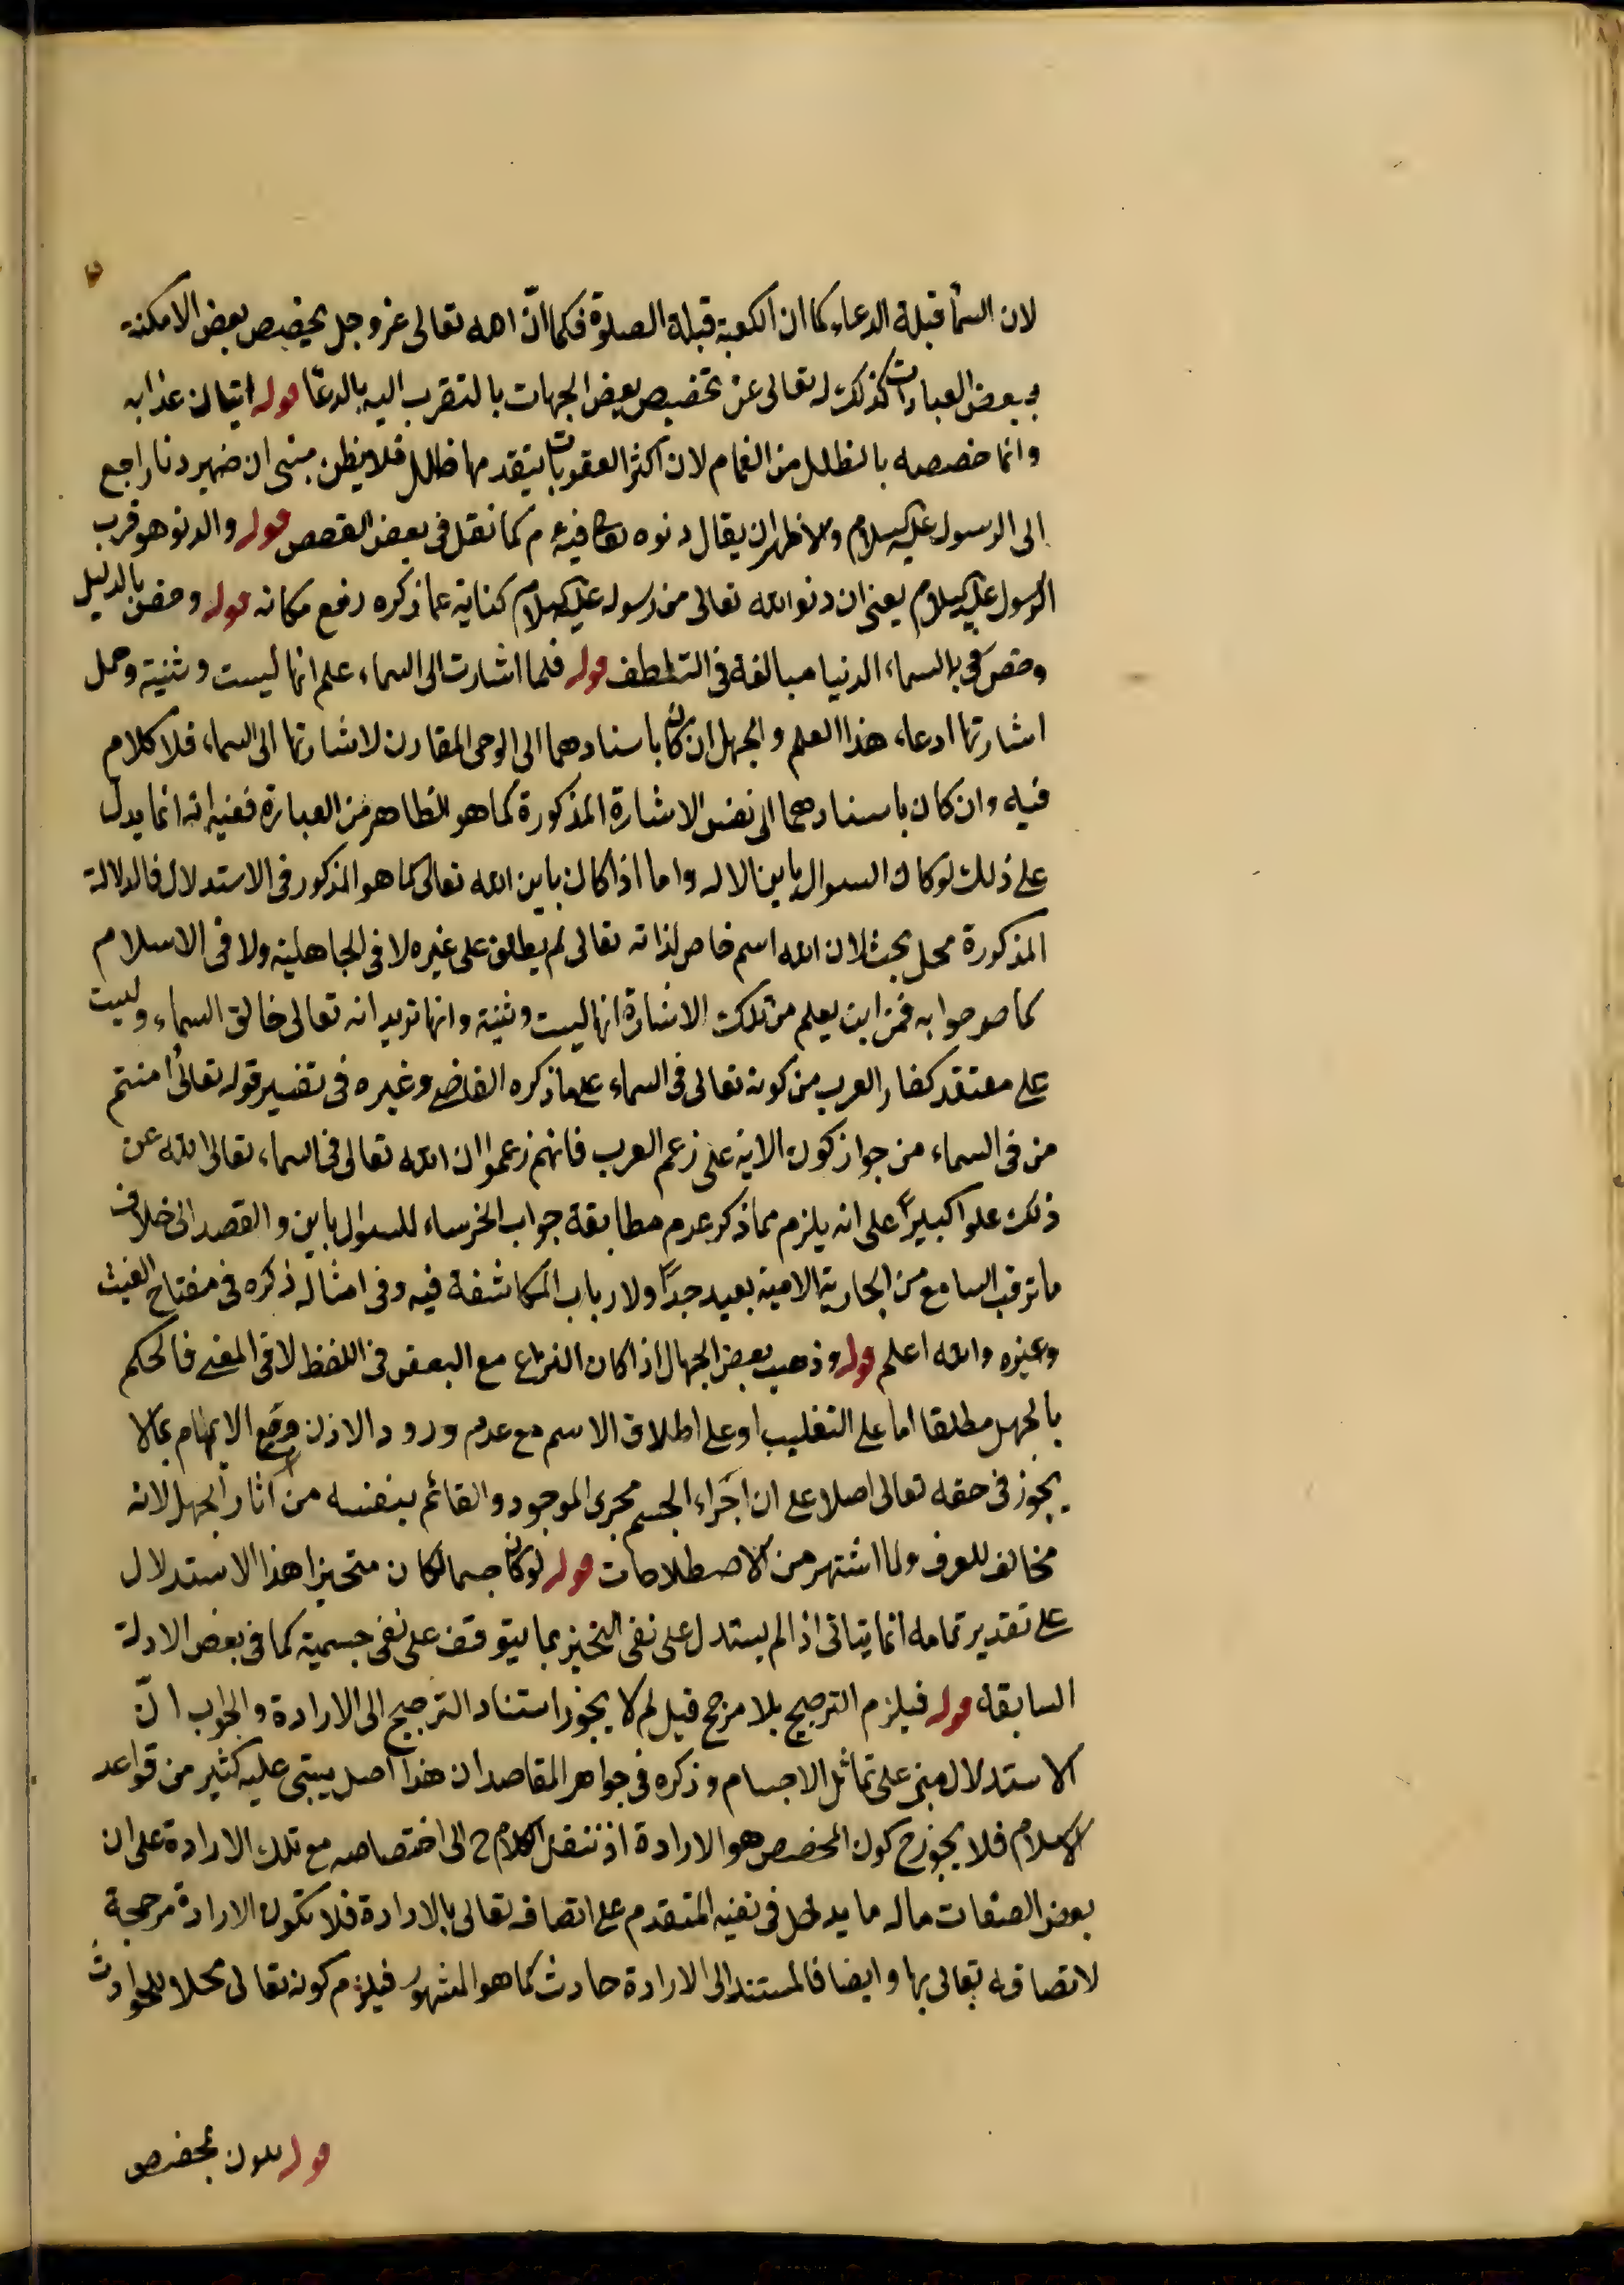 لان السمأ قبلة الدعاء كما ان الكعبة قبلة الصلوة فكما انّ الله تعالى عز وجل يخصص بعض الامكنة
ببعض العبادات كذلك له تعالى عن تخصيص بعض الجهات بالتقرب اليه بالدعا قوله اتيان عذابه
وانما خصصه بالظلل من الغمام لان اكثر العقوبات يتقدمها ظلل فلا يظن مبنى ان ضمير دنا راجع
الى الرسول عليه السلام والاظهر ان يقال دنوه كما نقل فى بعض القصص قوله والدنو هو قرب
الرسول عليه السلام يعنى ان دنو الله تعالى من رسوله عليه السلام كناية عما ذكره رفع مكانه قوله وخص بالدليل
وخص بالسماء الدنيا مبالغة فى التلطف قوله فلما اشارت الى السماء علم انها ليست وثنية وحمل
اشارتها ادعاء هذا العلم والجهل ان كان باسنادهما الى الوحى المقارن لاشارتها الى السماء فلا كلام
فيه وان كان باسنادهما الى نفس الاشارة المذكورة كما هو الظاهر من العبارة ففيه انه انما يدل
على ذلك لو كان السوال باين الاله واما اذا كان باين الله تعالى كما هو المذكور فى الاستدلال فالدلالة
المذكورة محل بحث لان الله اسم خاص لذاته تعالى لم يطلق على غيره لا فى الجاهلية ولا فى الاسلام
كما صرحوا به فمن اين يعلم من تلك الاشارة انها ليست وثنية وانها تريد انه تعالى خالق السماء وليست
على معتقد كفار العرب من كونه تعالى فى السماء على ما ذكره القاضى وغيره فى تفسير قوله تعالى أامنتم
من فى السماء من جواز كون الاية على زعم العرب فانهم زعموا ان الله تعالى فى السماء تعالى الله عن
ذلك علوا كبيرًا على انه يلزم مما ذكر عدم مطابقة جواب الخرساء للسوال باين والقصد الى خلاف
ما ترقب السامع من الجارية الامية بعيد جدًا ولارباب المكاشفة فيه وفى امثاله ذكره فى مفتاح الغيث
وغيره والله اعلم قوله وذهب بعض الجهال اذا كان النزاع مع البعض فى اللفظ لا فى المعنى فالحكم
بالجهل مطلقا اما على التغليب او على اطلاق الاسم مع عدم ورود الاذن ومع الايهام بما لا
يجوز فى حقه تعالى اصلا على ان اجراء الجسم مجرى الموجود والقائم بنفسه من آثار الجهل لانه
مخالف للعرف ولما اشتهر من الاصطلاحات قوله لو كان جسما لكان متحيزا هذا الاستدلال
على تقدير تمامه انما يتاتى اذا لم يستدل على نفى التحيز بما يتوقف على نفى جسمية كما فى بعض الادلة
السابقة قوله فيلزم الترجيح بلا مرجح قيل لم لا يجوز استناد الترجيح الى الارادة والجواب انّ
الاستدلال مبنى على تماثل الاجسام وذكره فى جواهر المقاصد ان هذا اصل يبتنى عليه كثير من قواعد
الاسلام فلا يجوز ح كون المخصص هو الارادة اذ ننقل الكلام ح الى اختصاصه مع تلك الارادة على ان
بعض الصفات ماله ما يدخل فى نفيه المتقدم على اتصافه تعالى بالارادة فلا تكون الارادة مرجحة
لاتصافه تعالى بها وايضا فالمستند الى الارادة حادث كما هو المشهور فيلزم كونه تعالى محلا للحوادث
قوله بمخصص